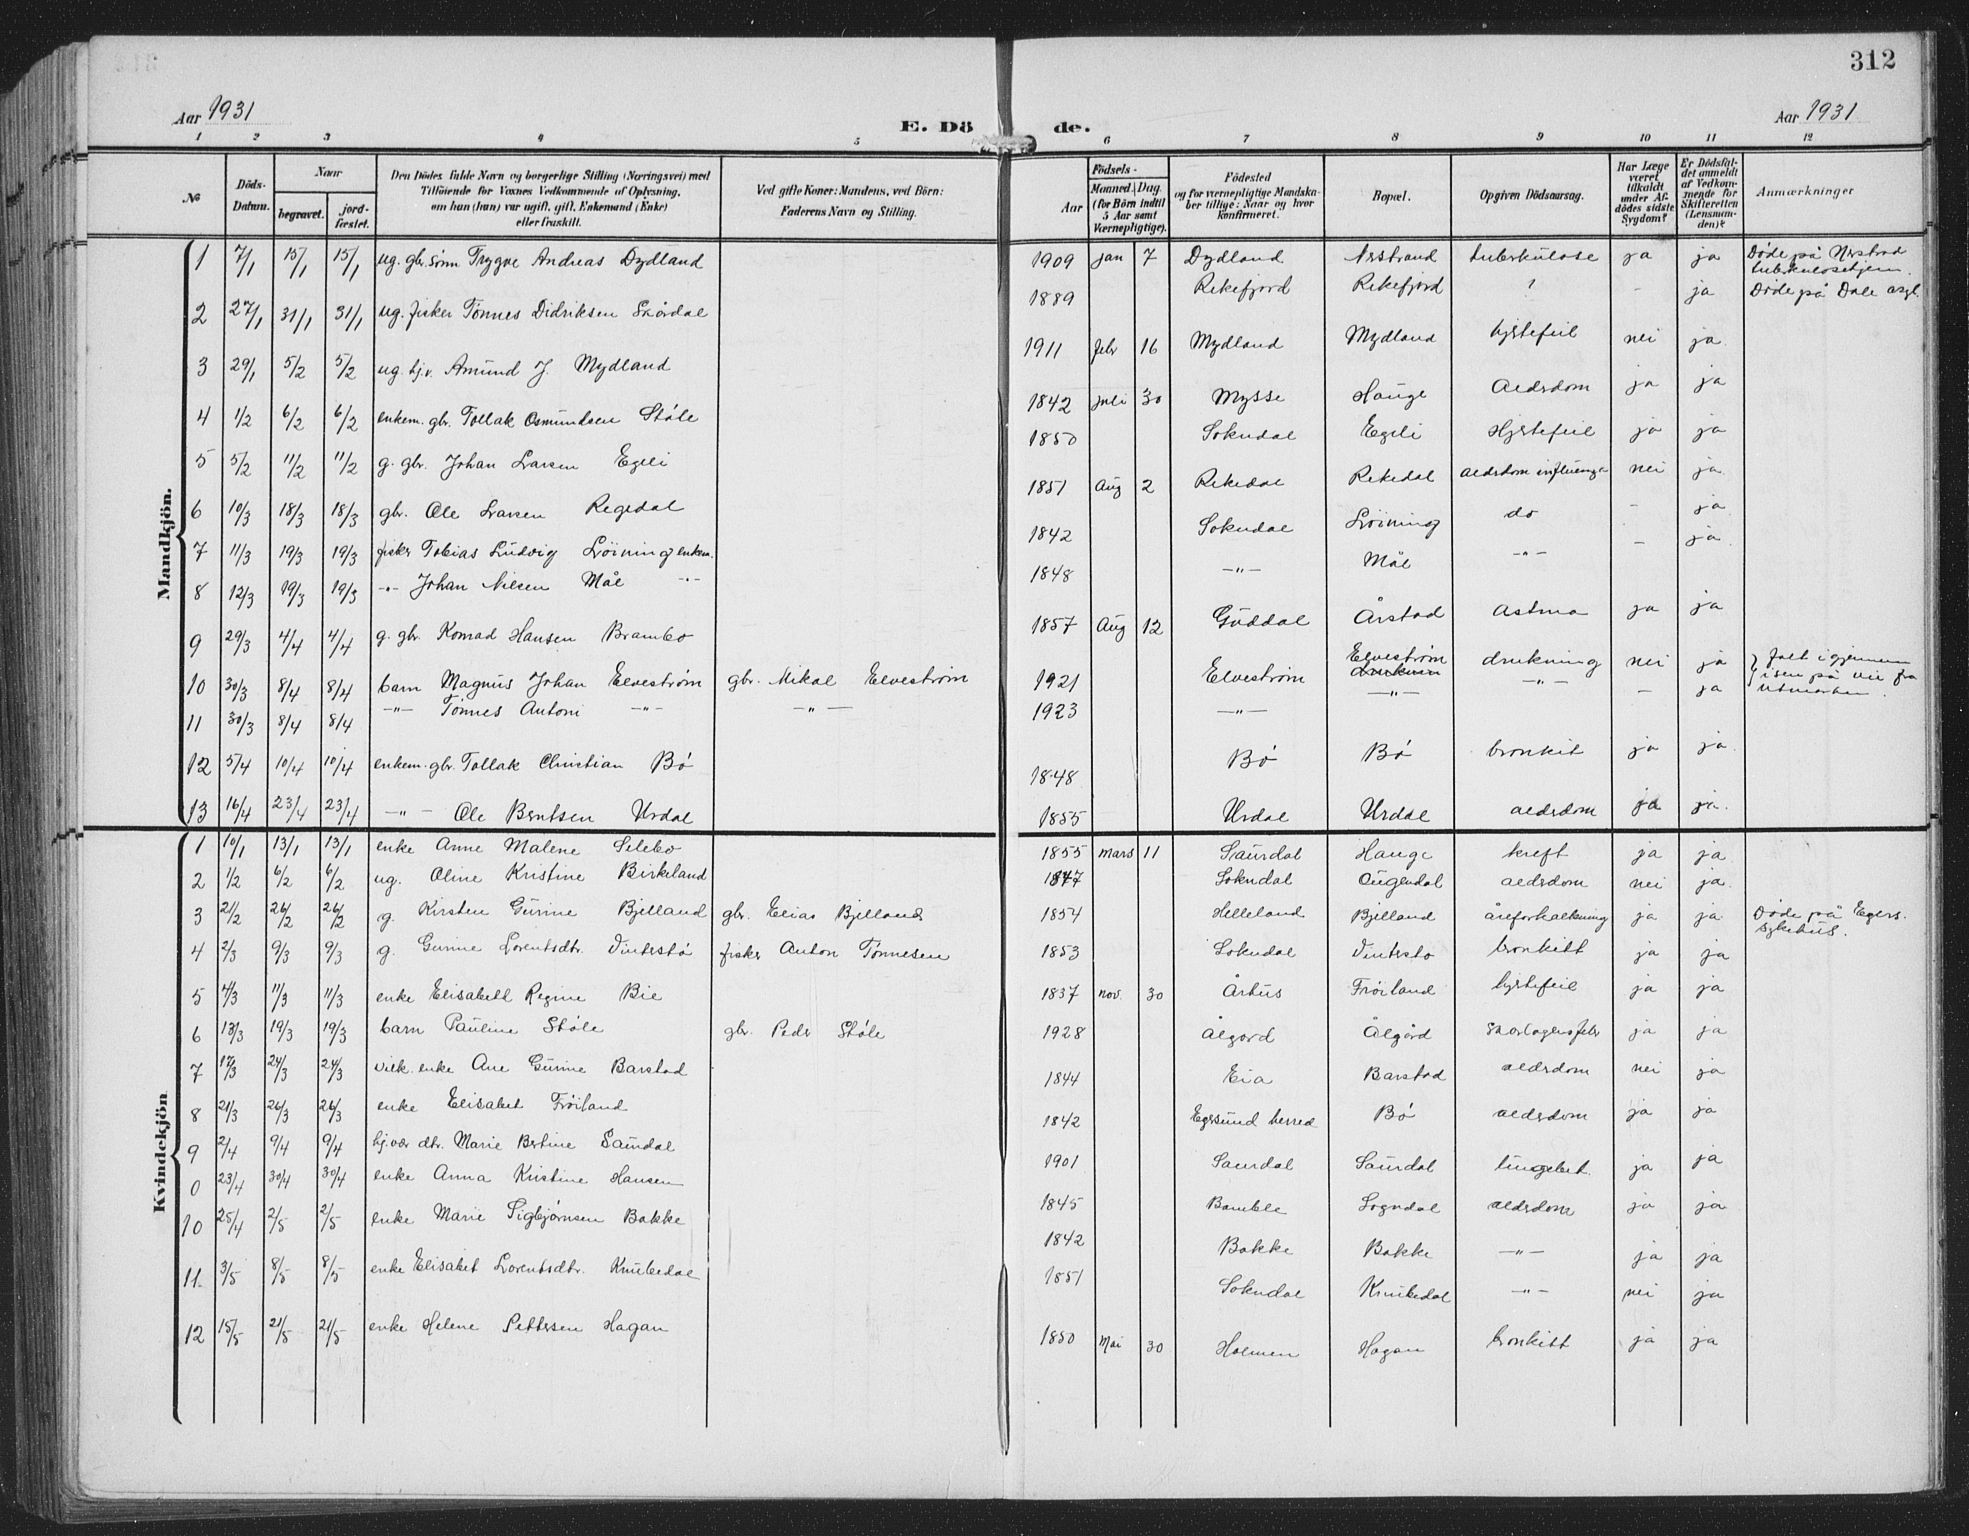 312
Aar 1931
E. Dö de.
Aar 1931
1 2 3 4 5 6 7 8 9 10 11 12
№
Döds-Datum.
Naar
begravet.
jord-fæstet.
Den Dödes fulde Navn og borgerlige Stilling (Næringsvei) med
Tilföiende for Voxnes Vedkommende af Oplysning,
om han (hun) var ugift, gift, Enkemand (Enke)
eller fraskilt.
Ved gifte Koner: Mandens, ved Börn:
Faderens Navn og Stilling.
Födsels-
Aar
Maaned. Dag.
(for Börn indtil
5 Aar samt
Værnepligtige).
Födested
og for værnepligtige Mandska-
ber tillige: Naar og hvor
konfirmeret.
Bopæl.
Opgiven Dödsaarsag.
Har Læge
været
tilkaldt
under Af-
dödes sidste
Sygdom?
Er Dödsfal-
det anmeldt
af Vedkom-
mende for
Skifteretten
(Lensman-
den)?
Anmærkninger
Mandkjön.
1 7/1 15/1 15/1 ug. gbr. sønn Trygve Andreas Dydland 1909 jan 7 Dydland Årstrand tuberkulose ja ja Døde på Nerstrad tuberkulosehjem.
2 27/1 31/1 31/1 ug. fisker Tønnes Didriksen Stårdal 1889 Rekefjord Rekefjord ? - ja Døde på Dale asyl
3 29/1 5/2 5/2 ug. hj.v. Amund J. Mydland 1911 febr 16 Mydland Mydland hjertefeil nei ja
4 1/2 6/2 6/2 enkem. gbr. Tollak Osmundsen Støle 1842 juli 30 Mysse Hauge Aldrdom ja ja
5 5/2 11/2 11/2 g. gbr. Johan Larsen Egeli 1850 Sokndal Egeli Hjertefeil ja ja
6 10/3 18/3 18/3 gbr. Ole Larsen Regedal 1851 Aug 2 Rekedal Rekedal aldrdom influenza nei ja
7 11/3 19/3 19/3 fisker Tobias Ludvig Løining enkem. 1842 Sokndal Løining do - ja
8 12/3 19/3 19/3 -"- Johan Nilsen Mål -"- 1848 -"- Mål -"- - ja
9 29/3 4/4 4/4 g. gbr. Konrad Hansen Brambo 1857 Aug 12 Guddal Årstad astma ja ja
10 30/3 8/4 8/4 barn Magnus Johan Elvestrøm gbr. Mikal Elvestrøm 1921 Elvestrøm Elvestrøm drukning nei ja } falt igjennem
11 30/3 8/4 8/4 -"- Tønnes Antoni -"- -"- 1923 -"- -"- -"- - ja isen på vei fra utmarken.
12 5/4 10/4 10/4 enkem. gbr. Tollak Christian Bø 1848 Bø Bø bronkit ja ja
13 16/4 23/4 23/4 -"- Ole Berntsen Urdal 1855 Urdal Urdal aldrdom ja ja
Kvindekjön
1 10/1 13/1 13/1 enke Anne Malene Selebo 1855 mars 11 Saurdal Hauge kreft ja ja
2 1/2 6/2 6/2 ug. Oline Kristine Birkeland 1847 Sokndal Augendal aldrdom nei ja
3 21/2 26/2 26/2 g. Kirsten Gurine Bjelland gbr. Elias Bjelland 1854 Helleland Bjelland åreforkalkning ja ja Døde på Egers. sykehus.
4 2/3 9/3 9/3 g. Gurine Lorentsdtr. Vinterstø fisker Anton Tønnesen 1853 Sokndal Vinterstø bronkitt ja ja
5 4/3 11/3 11/3 enke Elisabett Regine Bie 1837 nov. 30 Århus Frøiland hjertefeil ja ja
6 13/3 19/3 19/3 barn Pauline Støle gbr. Peder Støle 1928 Ålgård Ålgård skarlagensfeber ja ja
7 17/3 24/3 24/3 vilk. enke Ane Gurine Barstad 1844 Eia Barstad aldrdom nei ja
8 21/3 26/3 26/3 enke Elisabet Frøiland 1842 Egersund herred Bø aldrdom ja ja
9 2/4 9/4 9/4 hj.vær. dtr. Marie Bertine Saurdal 1901 Saurdal Saurdal ja ja
0 23/4 30/4 30/4 enke Anna Kristine Hansen 1845 Bamble Sogndal aldrdom ja ja
10 25/4 2/5 2/5 enke Marie Sigbjørnsen Bakke 1842 Bakke Bakke -"- ja ja
11 3/5 8/5 8/5 enke Elisabet Lorentsdtr. Knubedal 1851 Sokndal Knubedal -"- nei ja
12 15/5 21/5 21/5 enke Helene Pettersen Hagan 1850 Mai 30 Holmen Hagan bronkitt ja ja